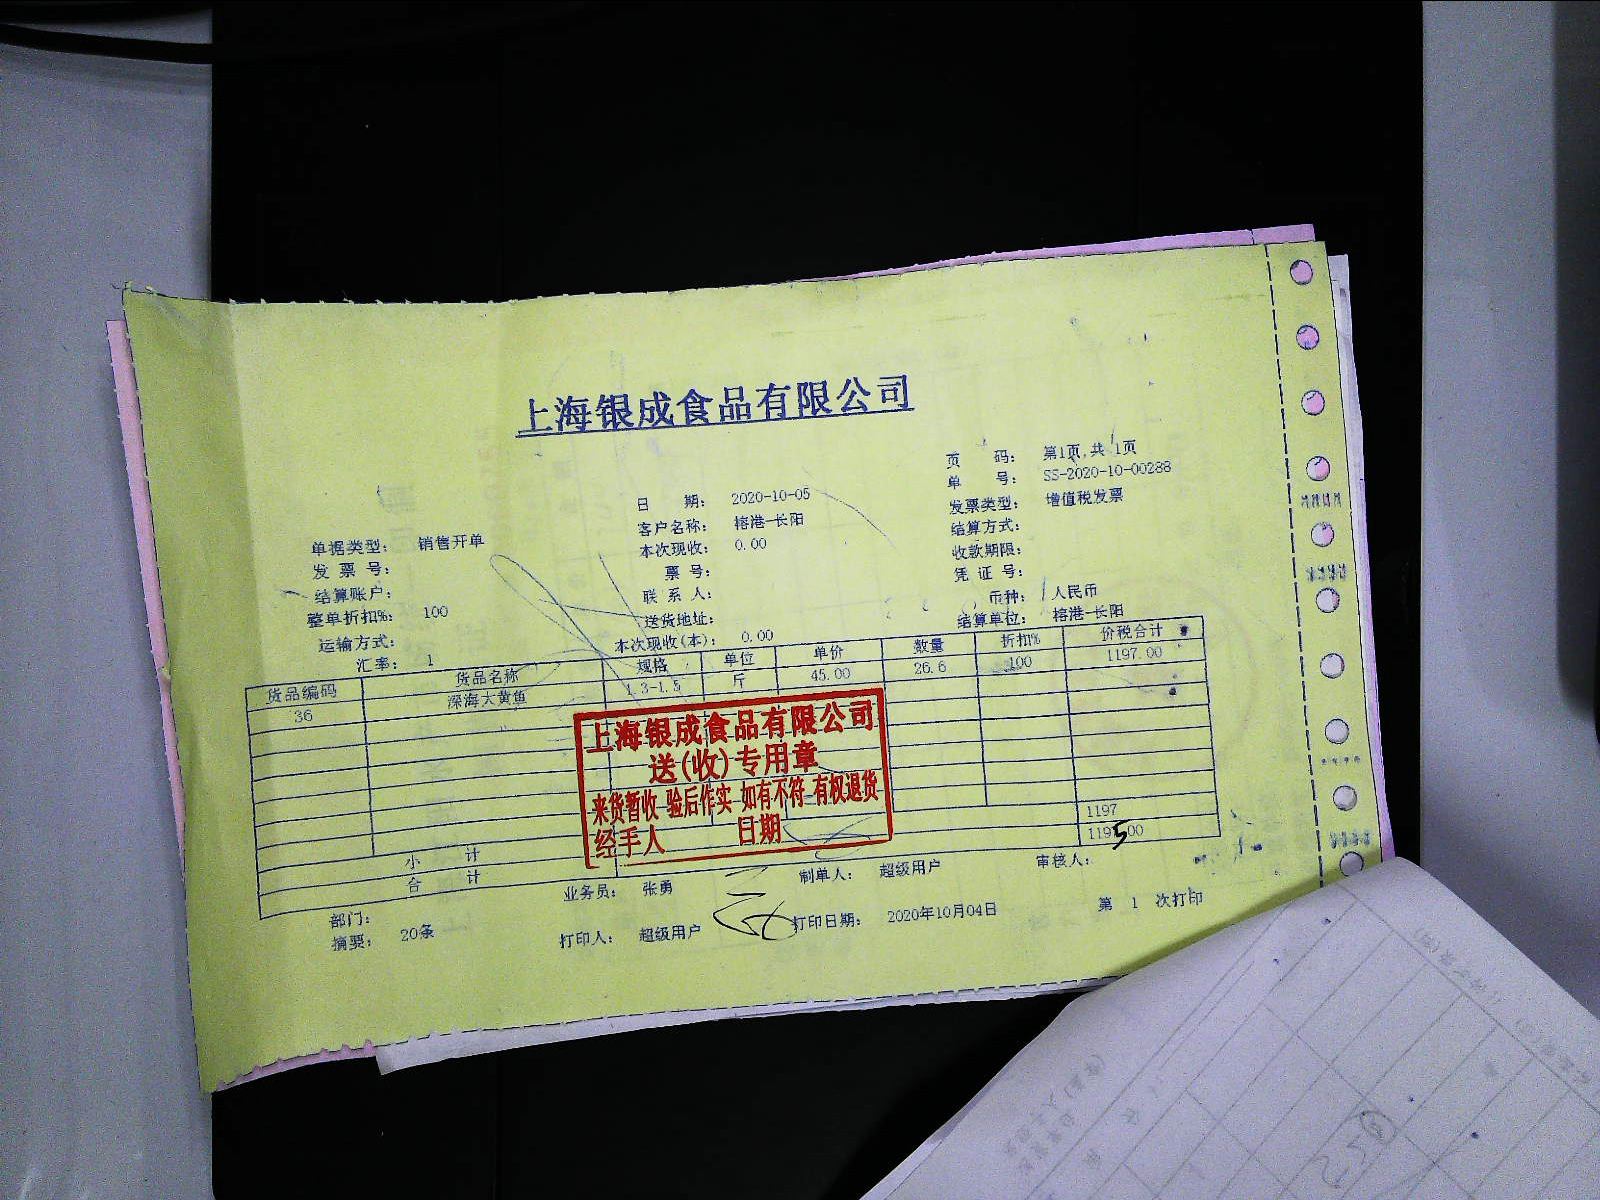 上海银成食品有限公司
页 码: 第1页,共 1页
单 号: SS-2020-10-00288
日 期: 2020-10-05
发票类型: 增值税发票
客户名称: 榕港-长阳
结算方式:
单据类型: 销售开单
本次现收: 0.00
收款期限:
发 票 号:
票 号:
凭 证 号:
结算账户:
联 系 人:
币种: 人民币
整单折扣%: 100
送货地址:
结算单位: 榕港-长阳
运输方式:
本次现收(本): 0.00
汇率: 1
货品编码 货品名称 规格 单位 单价 数量 折扣% 价税合计
36 深海大黄鱼 1.3-1.5 斤 45.00 26.6 100 1197.00
上海银成食品有限公司
送(收)专用章
来货暂收 验后作实 如有不符 有权退货
经手人 日期
小 计 1197
合 计 1195.00
部门: 业务员: 张勇 制单人: 超级用户 审核人:
摘要: 20条 打印人: 超级用户 打印日期: 2020年10月04日 第 1 次打印